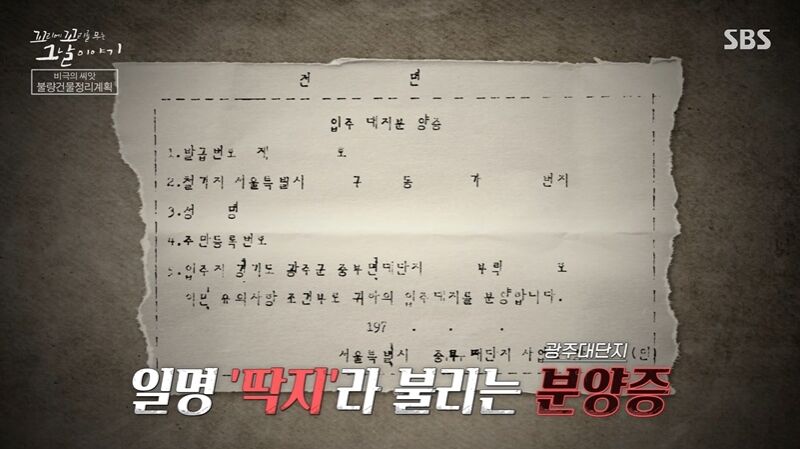 꼬리에 꼬리를 무는
그날 이야기
SBS
비극의 씨앗
불량건물정리계획
전 면
입주 대지분 양증
1.발급번호 제 호
2.철거지 서울특별시 구 동 가 번지
3.성 명
4.주민등록번호
5.입주지 경기도 광주군 중부면대단지 부럭 호
이면 유의사항 조건부로 귀하의 입주대지를 분양합니다.
197 . . .
서울특별시 중부 대단지 사업 (인)
광주대단지
일명 '딱지'라 불리는 분양증